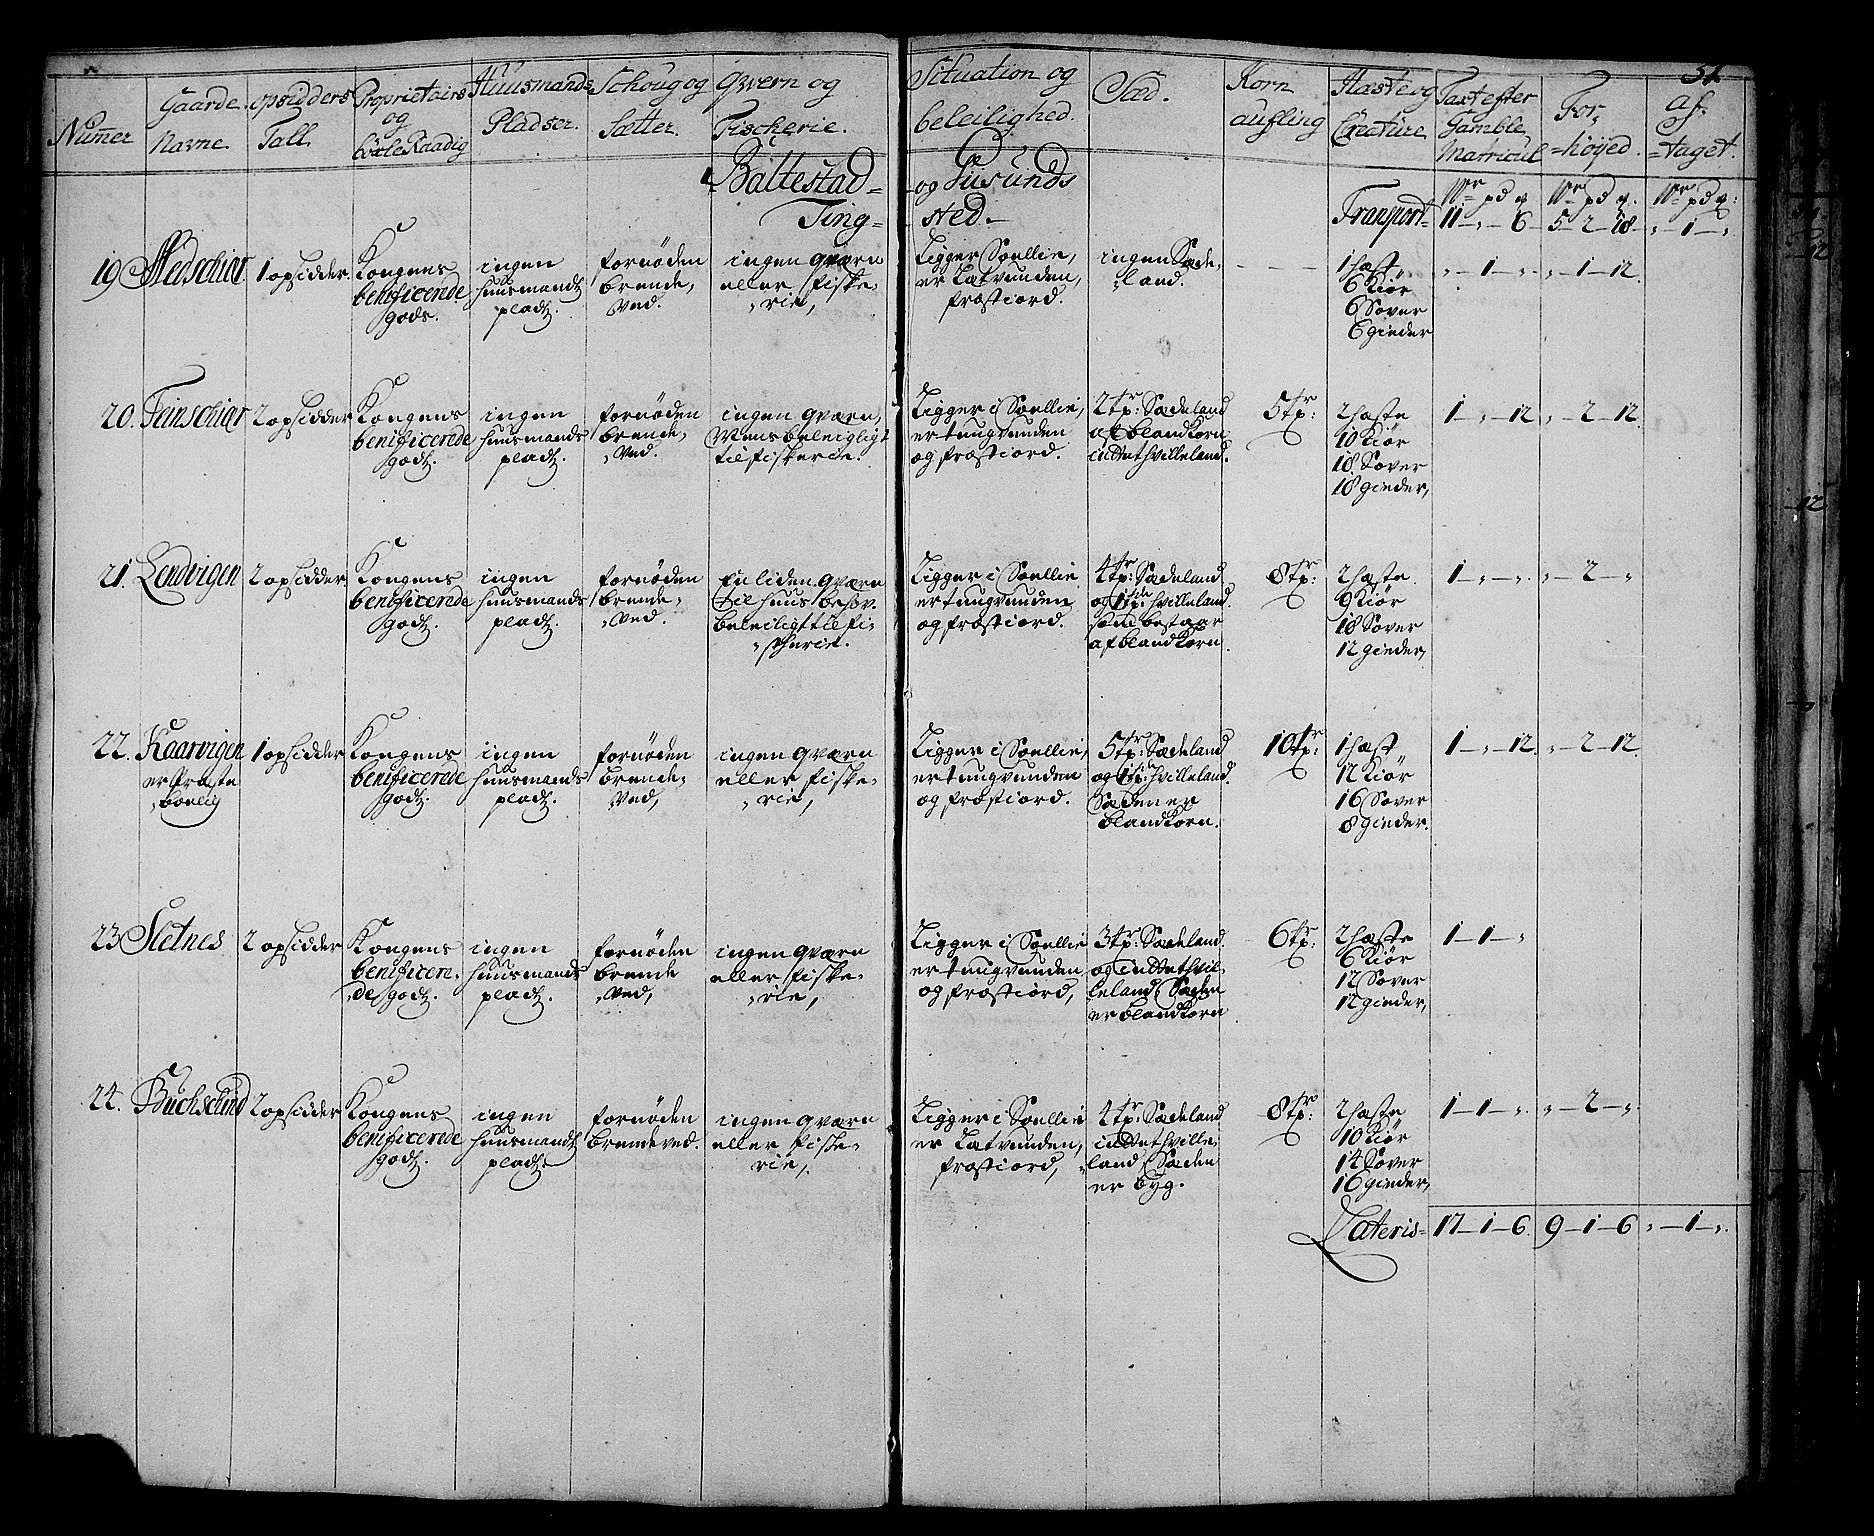 51.
Numer | Gaarde Navne. | opsidders Tall. | Proprietairs og böxle Raadig | Huusmands Pladser. | Schoug og Sætter. | Qvern og Fischerie. | Situation og beleilighed. | Sæd. | Korn aufling | Hæste og Creature | Taxt efter Gamble Matricul | For- =höyed. | af- =taget.
Baltestad- og Giisunds
Ting= sted.
Transport- | Wr pd q 11 - „ - 6 | Wr pd q. 5 - 2 - 18. | Wr pd q: „ - 1 - „
19 | Medschiær. | 1 opsidder | Kongens benificerede gods. | ingen huusmands pladtz. | fornøden brende, ved. | ingen qværn eller fiske, „rie, | Ligger i Søellie, er Latvunden, frostiord. | ingen Sæde, land. | - - - | 1 hæst 6 Kiør 6 Sover 6 gieder | „ - 1 - „ | „ - 1 - 12.
20. | Finschiær | 2 opsidder | Kongens benificerede godtz. | ingen huusmands pladtz. | fornøden brende, „ved. | ingen qværn, Mens beleigligt til fiskerie. | Ligger i Søellie, er tungvunden og frostiord. | 2 tr: Sædeland af blandkorn indtet hvilleland. | 5 tr: | 2 hæste 10 Kiør 18 Sover 18 gieder, | 1 - „ - 12 | „ - 2 - 12.
21. | Lendvigen | 2 opsidder | Kongens benificerede godtz. | ingen huusmands pladtz. | fornøden brende, „ved. | En liden qværn til huus behov. beleiligt til fi- „scherie. | Ligger i Søellie er tungvunden og frostiord. | 4 tr: Sædeland og 1 tr: hvilleland. som bestaar af blandkorn. | 8 tr: | 2 hæste. 9 Kiør 18 Sover 12 gieder, | 1 - „ - „. | „ - 2 - „
22. | Kaarvigen er fraste „bonlig | 1 opsidder | Kongens benificerede godtz. | ingen huusmands pladtz. | fornøden brende, ved, | ingen qværn eller fiske, „rie, | Ligger i Søellie, er tungvunden og frostiord. | 5 tr: Sædeland og 1 tr: hvilleland. Sæden er blandkorn. | 10 tr: | 1 hæst 12 Kiør 16 Sover 8 gieder. | 1 - „ - 12. | „ - 2 - 12
23 | Sletnes | 2 opsidder | Kongens benificere, de godtz. | ingen huusmands pladtz. | fornøden brende „ved, | ingen qværn eller fiske, „rie, | Ligger i Søellie er tungvunden og frostiord, | 3 tr: Sædeland. og indtet hvil, leland, Sæden er blandkorn | 6 tr: | 2 hæste 6 Kiør 12 Sover 12 gieder, | 1 - 1 - „
24. | Buchschind | 2 opsidder | Kongens benificerede godtz. | ingen huusmands pladtz. | fornøden brendeved. | ingen qværn eller fiske, rie, | Ligger i Søellie er Latvunden, frostiord, | 4 tr: Sædeland indtet hville, land, Sæden er byg. | 8 tr: | 2 hæste 10 Kiør 14 Sover 16 gieder, | 1 - 1 - „. | „ - 2 - „.
Lateris- | 17 - 1 - 6. | 9 - 1 - 6 | „ - 1 - „.